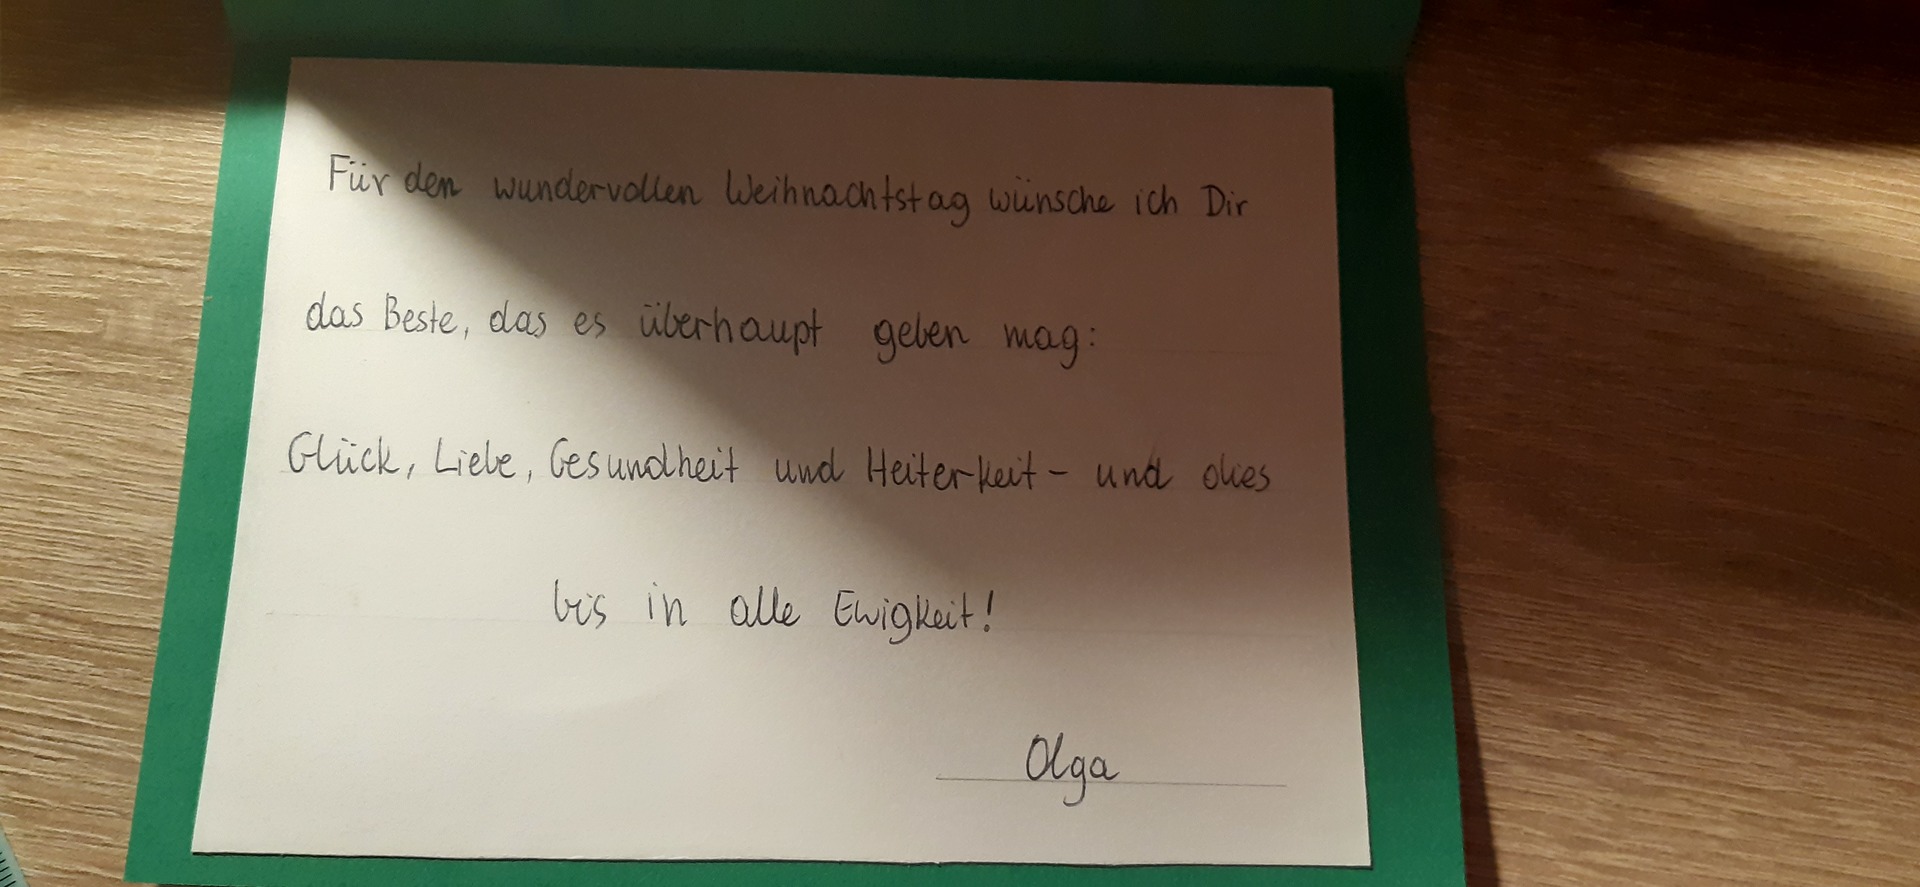 Für den wundervollen Weihnachtstag wünsche ich Dir
das Beste, das es überhaupt geben mag:
Glück, Liebe, Gesundheit und Heiterkeit - und dies
bis in alle Ewigkeit!
Olga